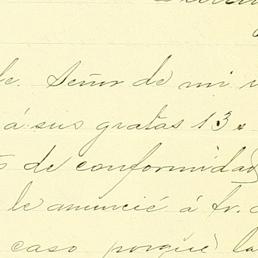 le. Señor de mi
á sus gratas 13 s
de conformidad
le anuncié á Fr.
caso porqué la